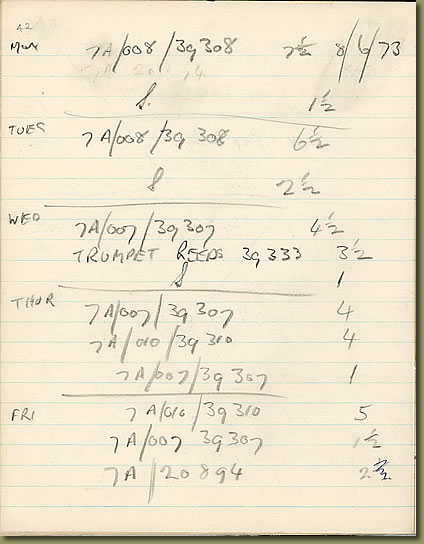 42
Mon 7A/008/39308 7½ 8/6/73
S. 1½
TUES 7A/008/39 308 6½
S 2½
WED 7A/007/39307 4½
TRUMPET REEDS 39333 3½
S 1
THUR 7A/007/39307 4
7A/010/39310 4
7A/007/39307 1
FRI 7A/010/39310 5
7A/007 39307 1½
7A/20894 2½